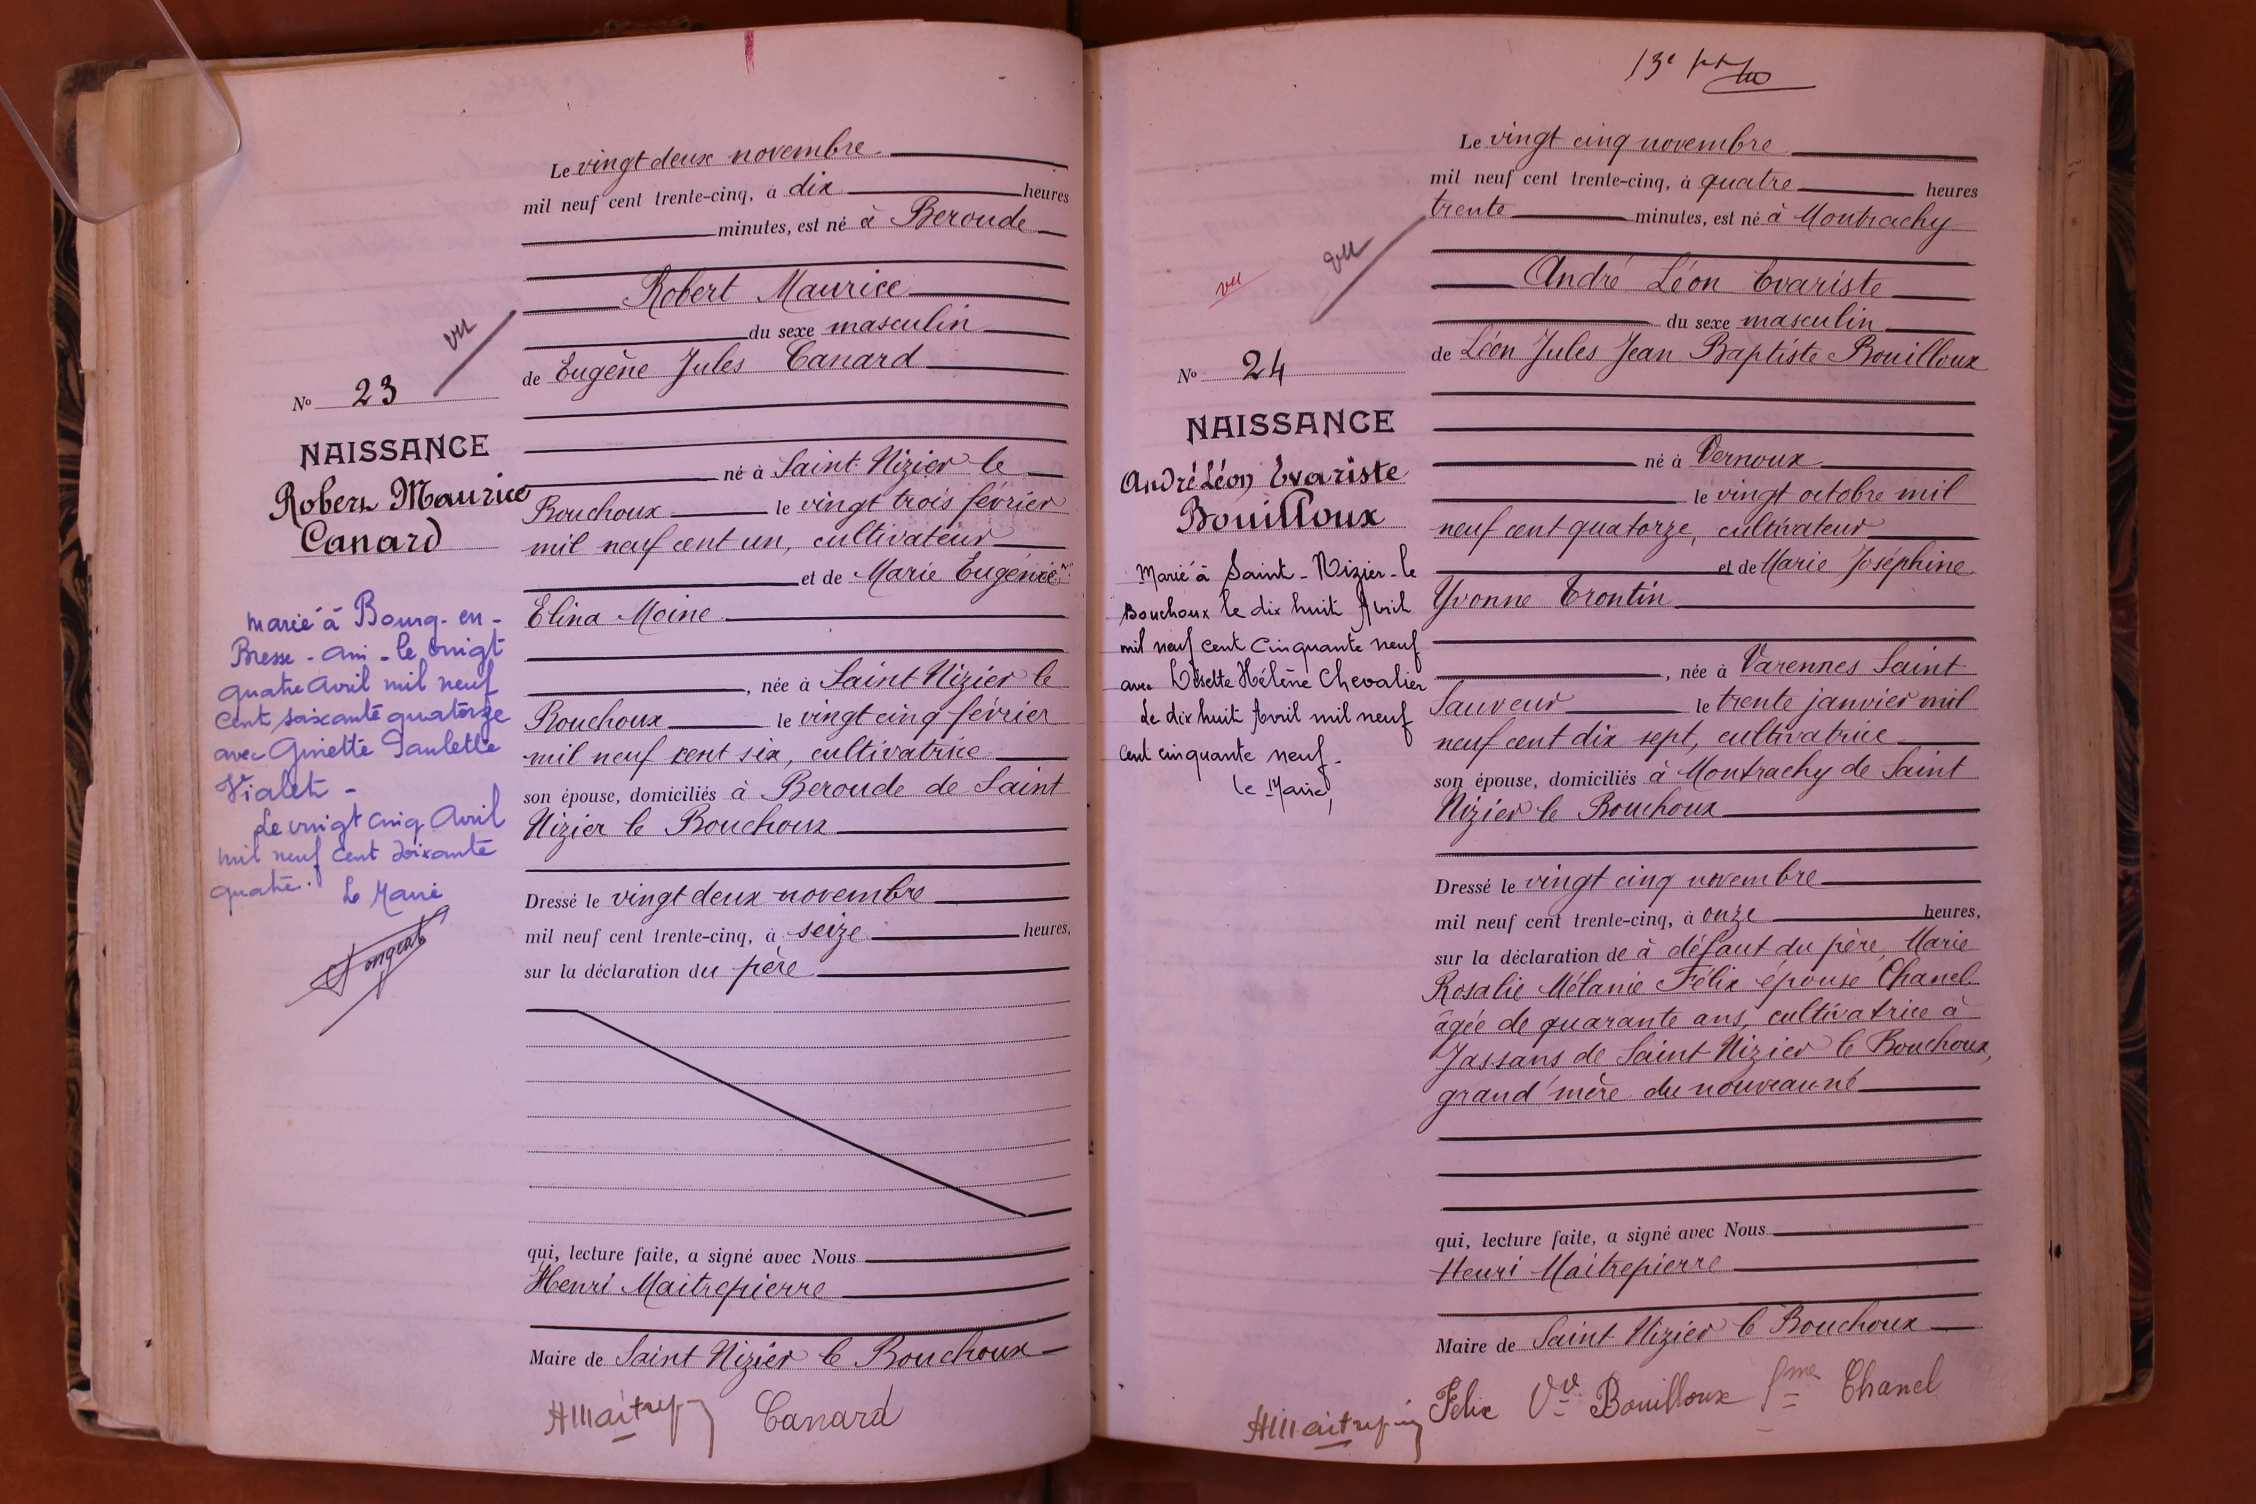 Le vingt deux novembre
mil neuf cent trente-cinq, à dix heures
minutes, est né à Beroude
Robert Maurice
du sexe masculin
de Eugène Jules Canard
né à Saint Nizier le
Bouchoux le vingt trois février
mil neuf cent un, cultivateur
et de Marie Eugénie
Elina Moine
, née à Saint Nizier le
Bouchoux le vingt cinq février
mil neuf cent six, cultivatrice
son épouse, domiciliés à Beroude de Saint
Nizier le Bouchoux
Dressé le vingt deux novembre
mil neuf cent trente-cinq, à seize heures,
sur la déclaration du père
qui, lecture faite, a signé avec Nous
Henri Maitrepierre
Maire de Saint Nizier le Bouchoux
HMaitrep Canard
vu
No 23
NAISSANCE
Robert Maurice
Canard
Marié à Bourg-en-
Bresse-Ain-le vingt
quatre Avril mil neuf
Cent soixante quatorze
avec Ginette Paulette
Vialet-
Le vingt cinq Avril
mil neuf cent soixante
quatre.
Le Maire
13e
Le vingt cinq novembre
mil neuf cent trente-cinq, à quatre heures
trente minutes, est né à Montrachy
André Léon Evariste
du sexe masculin
de Léon Jules Jean Baptiste Bouilloux
né à Vernoux
le vingt octobre mil
neuf cent quatorze, cultivateur
et de Marie Joséphine
Yvonne Trontin
, née à Varennes Saint
Sauveur le trente janvier mil
neuf cent dix sept, cultivatrice
son épouse, domiciliés à Montrachy de Saint
Nizier le Bouchoux
Dressé le vingt cinq novembre
mil neuf cent trente-cinq, à onze heures,
sur la déclaration de à défaut du père, Marie
Rosalie Mélanie Félix épouse Chanel
âgée de quarante ans, cultivatrice à
Jassans de Saint Nizier le Bouchoux,
grand'mère du nouveau-né
qui, lecture faite, a signé avec Nous
Henri Maitrepierre
Maire de Saint Nizier le Bouchoux
HMaitrep Felix Vve Bouilloux fme Chanel
vu
vu
No 24
NAISSANCE
André Léon Evariste
Bouilloux
Marié à Saint-Nizier-le
Bouchoux le dix huit Avril
mil neuf cent Cinquante neuf
avec Lisette Hélène Chevalier
Le dix huit Avril mil neuf
Cent cinquante neuf-
Le Maire,